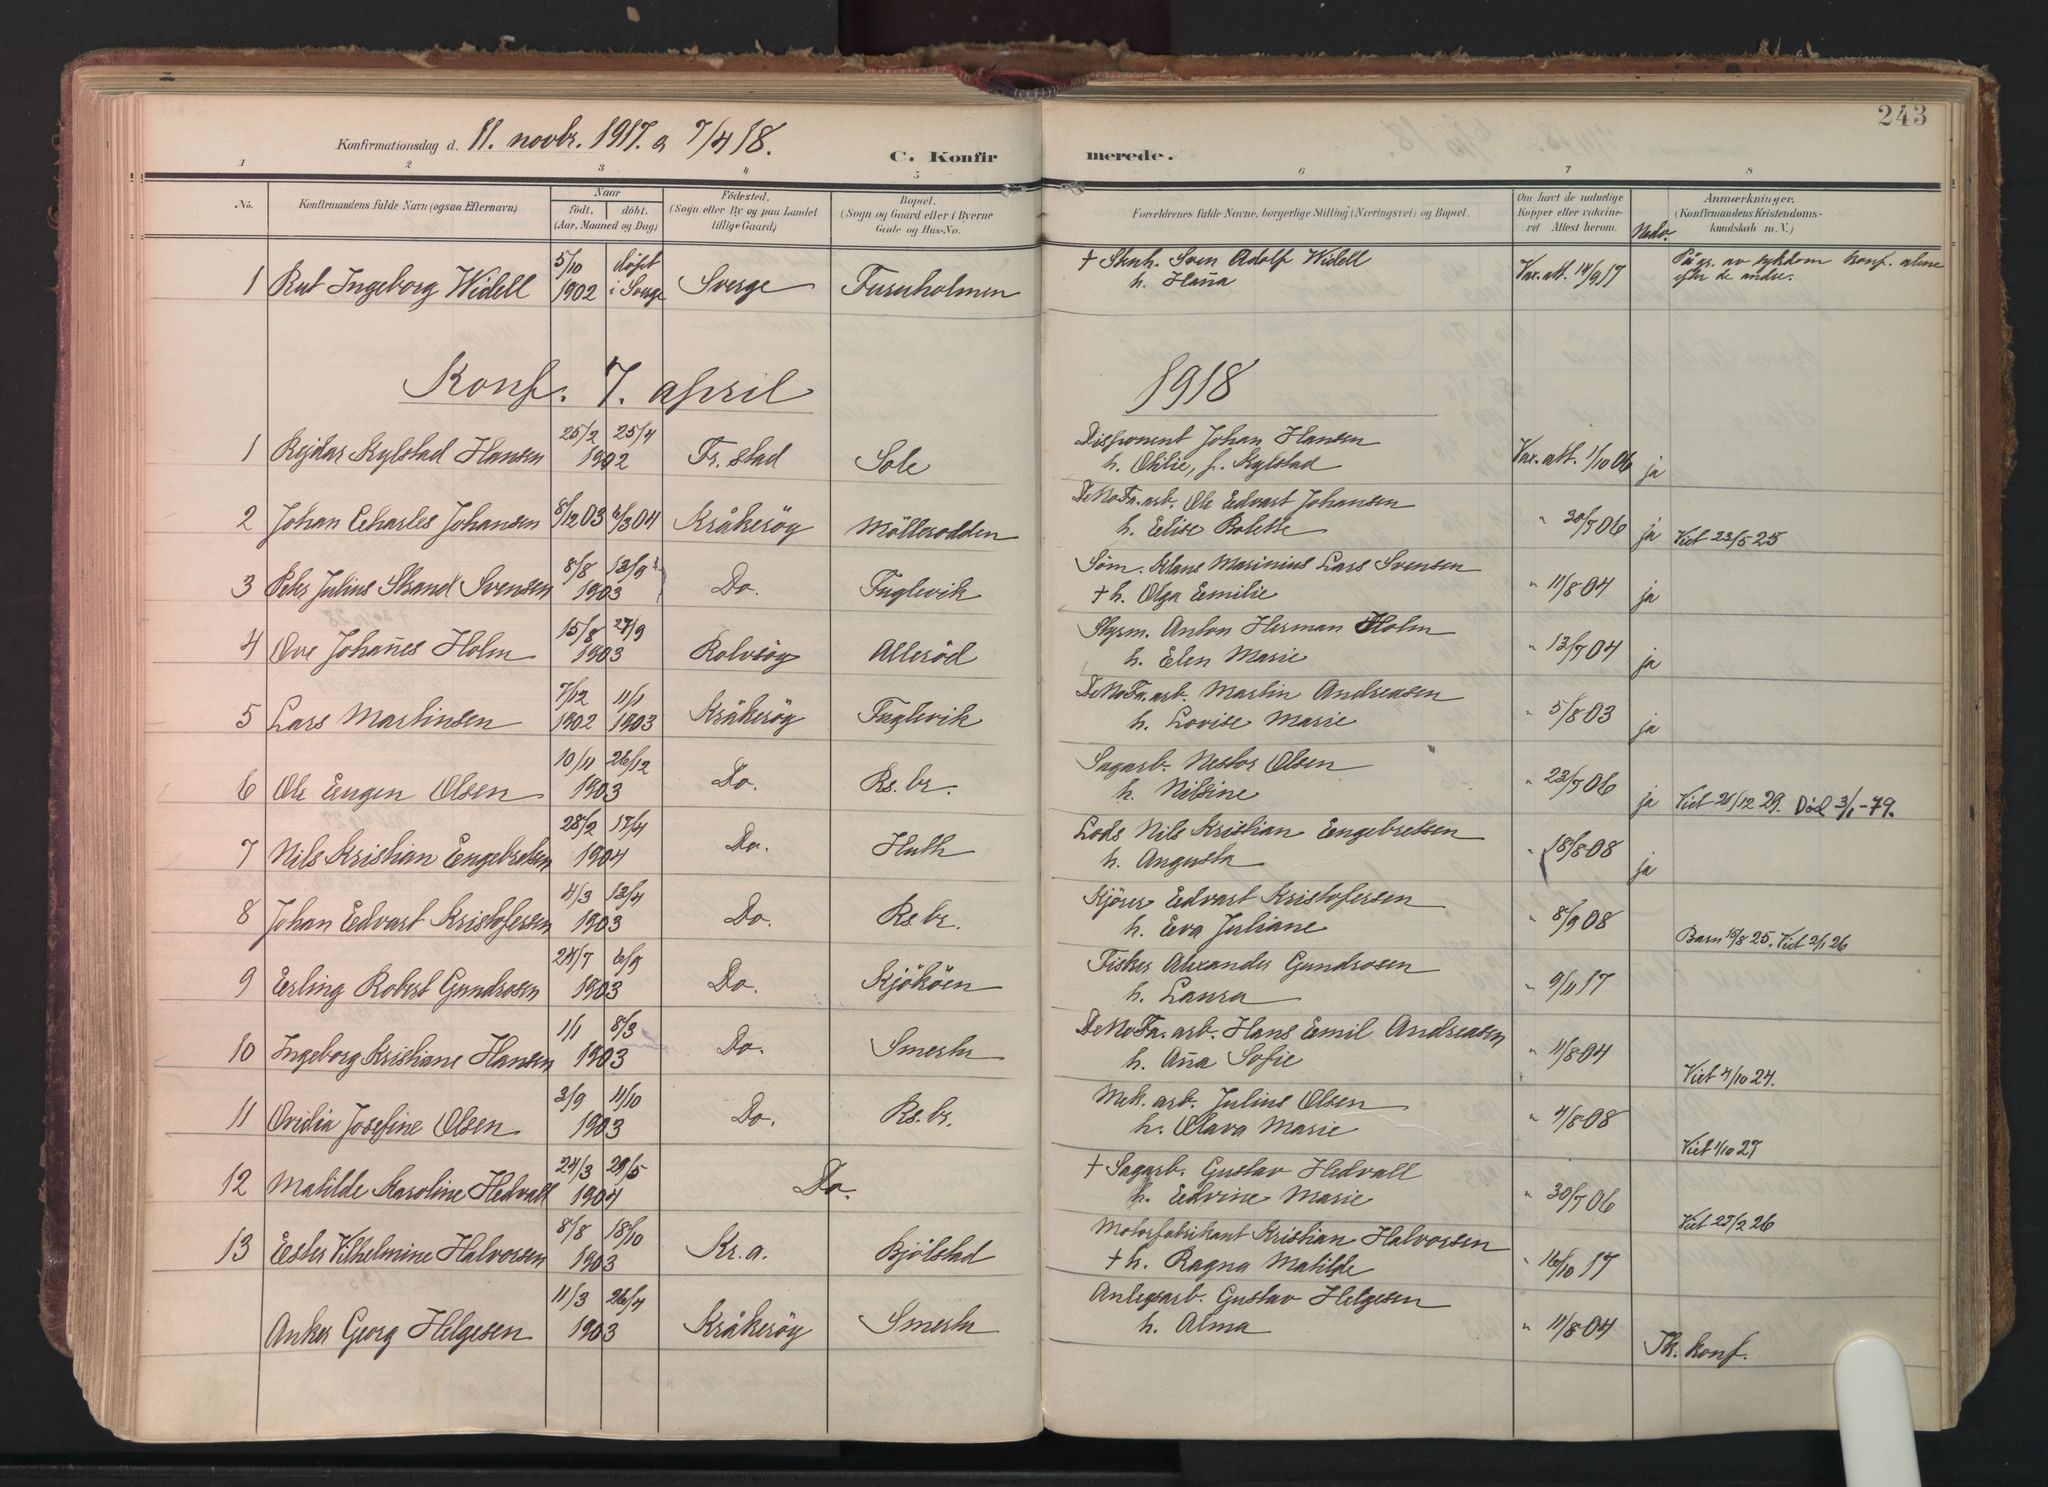 243
Konfirmationsdag d. 11. novbr. 1917. o 7/4 18.
C. Konfir merede.
1 2 3 4 5 6 7 8
No. Konfirmandens fulde Navn (ogsaa Efternavn) Naar födt. döbt. (Aar, Maaned og Dag) Födested. (Sogn eller By og paa Landet tillige Gaard) Bopæl. (Sogn og Gaard eller i Byerne Gade og Hus-No. Forældrenes fulde Navne, borgerlige Stilling (Næringsvei) og Bopæl. Om havt de naturlige Kopper eller vaccineret Attest herom. Anmærkninger. (Konfirmandens Kristendomskundskab m. V.)
1 Rut Ingeborg Widell 5/10 1902 döpt i Sverge Sverge Furuholmen † Stenh. Sven Adolf Widell h. Hana Vax. att. 14/9 17 På gr. av sykdom konf. alene efter de andre.
Konf. 7. april 1918
1 Rejdar Kylstad Hansen 25/2 25/4 1902 Fr.stad Sole Disponent Johan Hansen h. Otilie, f. Kylstad Vax. att. 1/10 06 ja
2 Johan Charles Johansen 8/12 03 6/3 04 Kråkeröy Möllerodden DeNoFa. arb. Ole Edvart Johansen h. Elise Bolette " 30/7 06 ja Viet 23/5 25
3 Peter Julius Strand Svensen 8/8 13/9 1903 Do. Fuglevik Söm. Klaus Marinius Lars Svensen † h. Olga Emilie " 11/8 04 ja
4 Ove Johanes Holm 15/8 27/9 1903 Rolvsöy Alleröd Styrm. Anton Herman Holm h. Elen Marie " 13/7 04 ja
5 Lars Martinsen 7/12 1902 11/1 1903 Kråkeröy Fuglevik DeNoFa. arb. Martin Andreasen h. Lovise Marie " 5/8 03 ja
6 Ole Eugen Olsen 10/11 26/12 1903 Do. Rs. br. Sagarb. Nestor Olsen h. Nilsine " 23/7 06 ja Viet 21/12 29. Död 3/1-79.
7 Nils Kristian Engebretsen 28/2 17/4 1904 Do. Huth Lods Nils Kristian Engebretsen h. Augusta " 18/8 08 ja
8 Johan Edvart Kristofersen 4/3 13/4 1903 Do. Rs. br. Kjörer Edvart Kristofersen h. Eva Juliane " 8/9 08 Barn 15/8 25. Viet 2/1 26
9 Erling Robert Gundrosen 24/7 6/9 1903 Do. Kjököen Fisker Alexander Gundrosen h. Laura " 9/11 17
10 Ingeborg Kristiane Hansen 1/1 8/3 1903 Do. Smertu DeNoFa. arb. Hans Emil Andreasen h. Ana Sofie " 11/8 04 Viet 4/10 24.
11 Ovidia Josefine Olsen 3/9 11/10 1903 Do. Rs. br. Mek. arb. Julius Olsen h. Olava Marie " 4/8 08 Viet 1/10 27
12 Matilde Karoline Hedvall 24/3 29/5 1904 Do. † Sagarb. Gustav Hedvall h. Edvine Marie " 30/7 06 Viet 27/2 26
13 Ester Vilhelmine Halvorsen 8/8 18/10 1903 Kr.a. Bjölstad Motorfabrikant Kristian Halvorsen † h. Ragna Matilde " 16/10 17
Anker Georg Helgesen 11/3 26/4 1903 Kråkeröy Smertu Anlegsarb. Gustav Helgesen h. Alma " 11/8 04 Tk. konf.